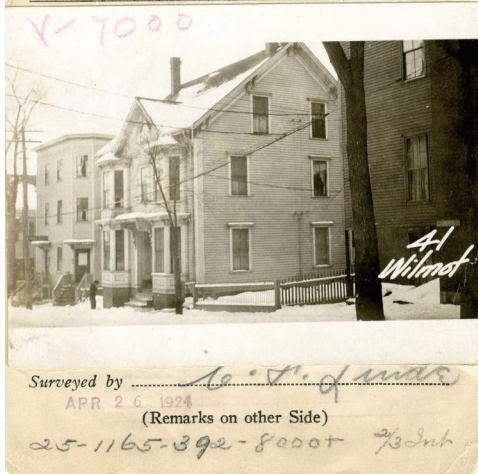 V-7000
41
Wilmot
Surveyed by
APR 26 1924
(Remarks on other Side)
25-1165-392-8000+ 2/3 Int